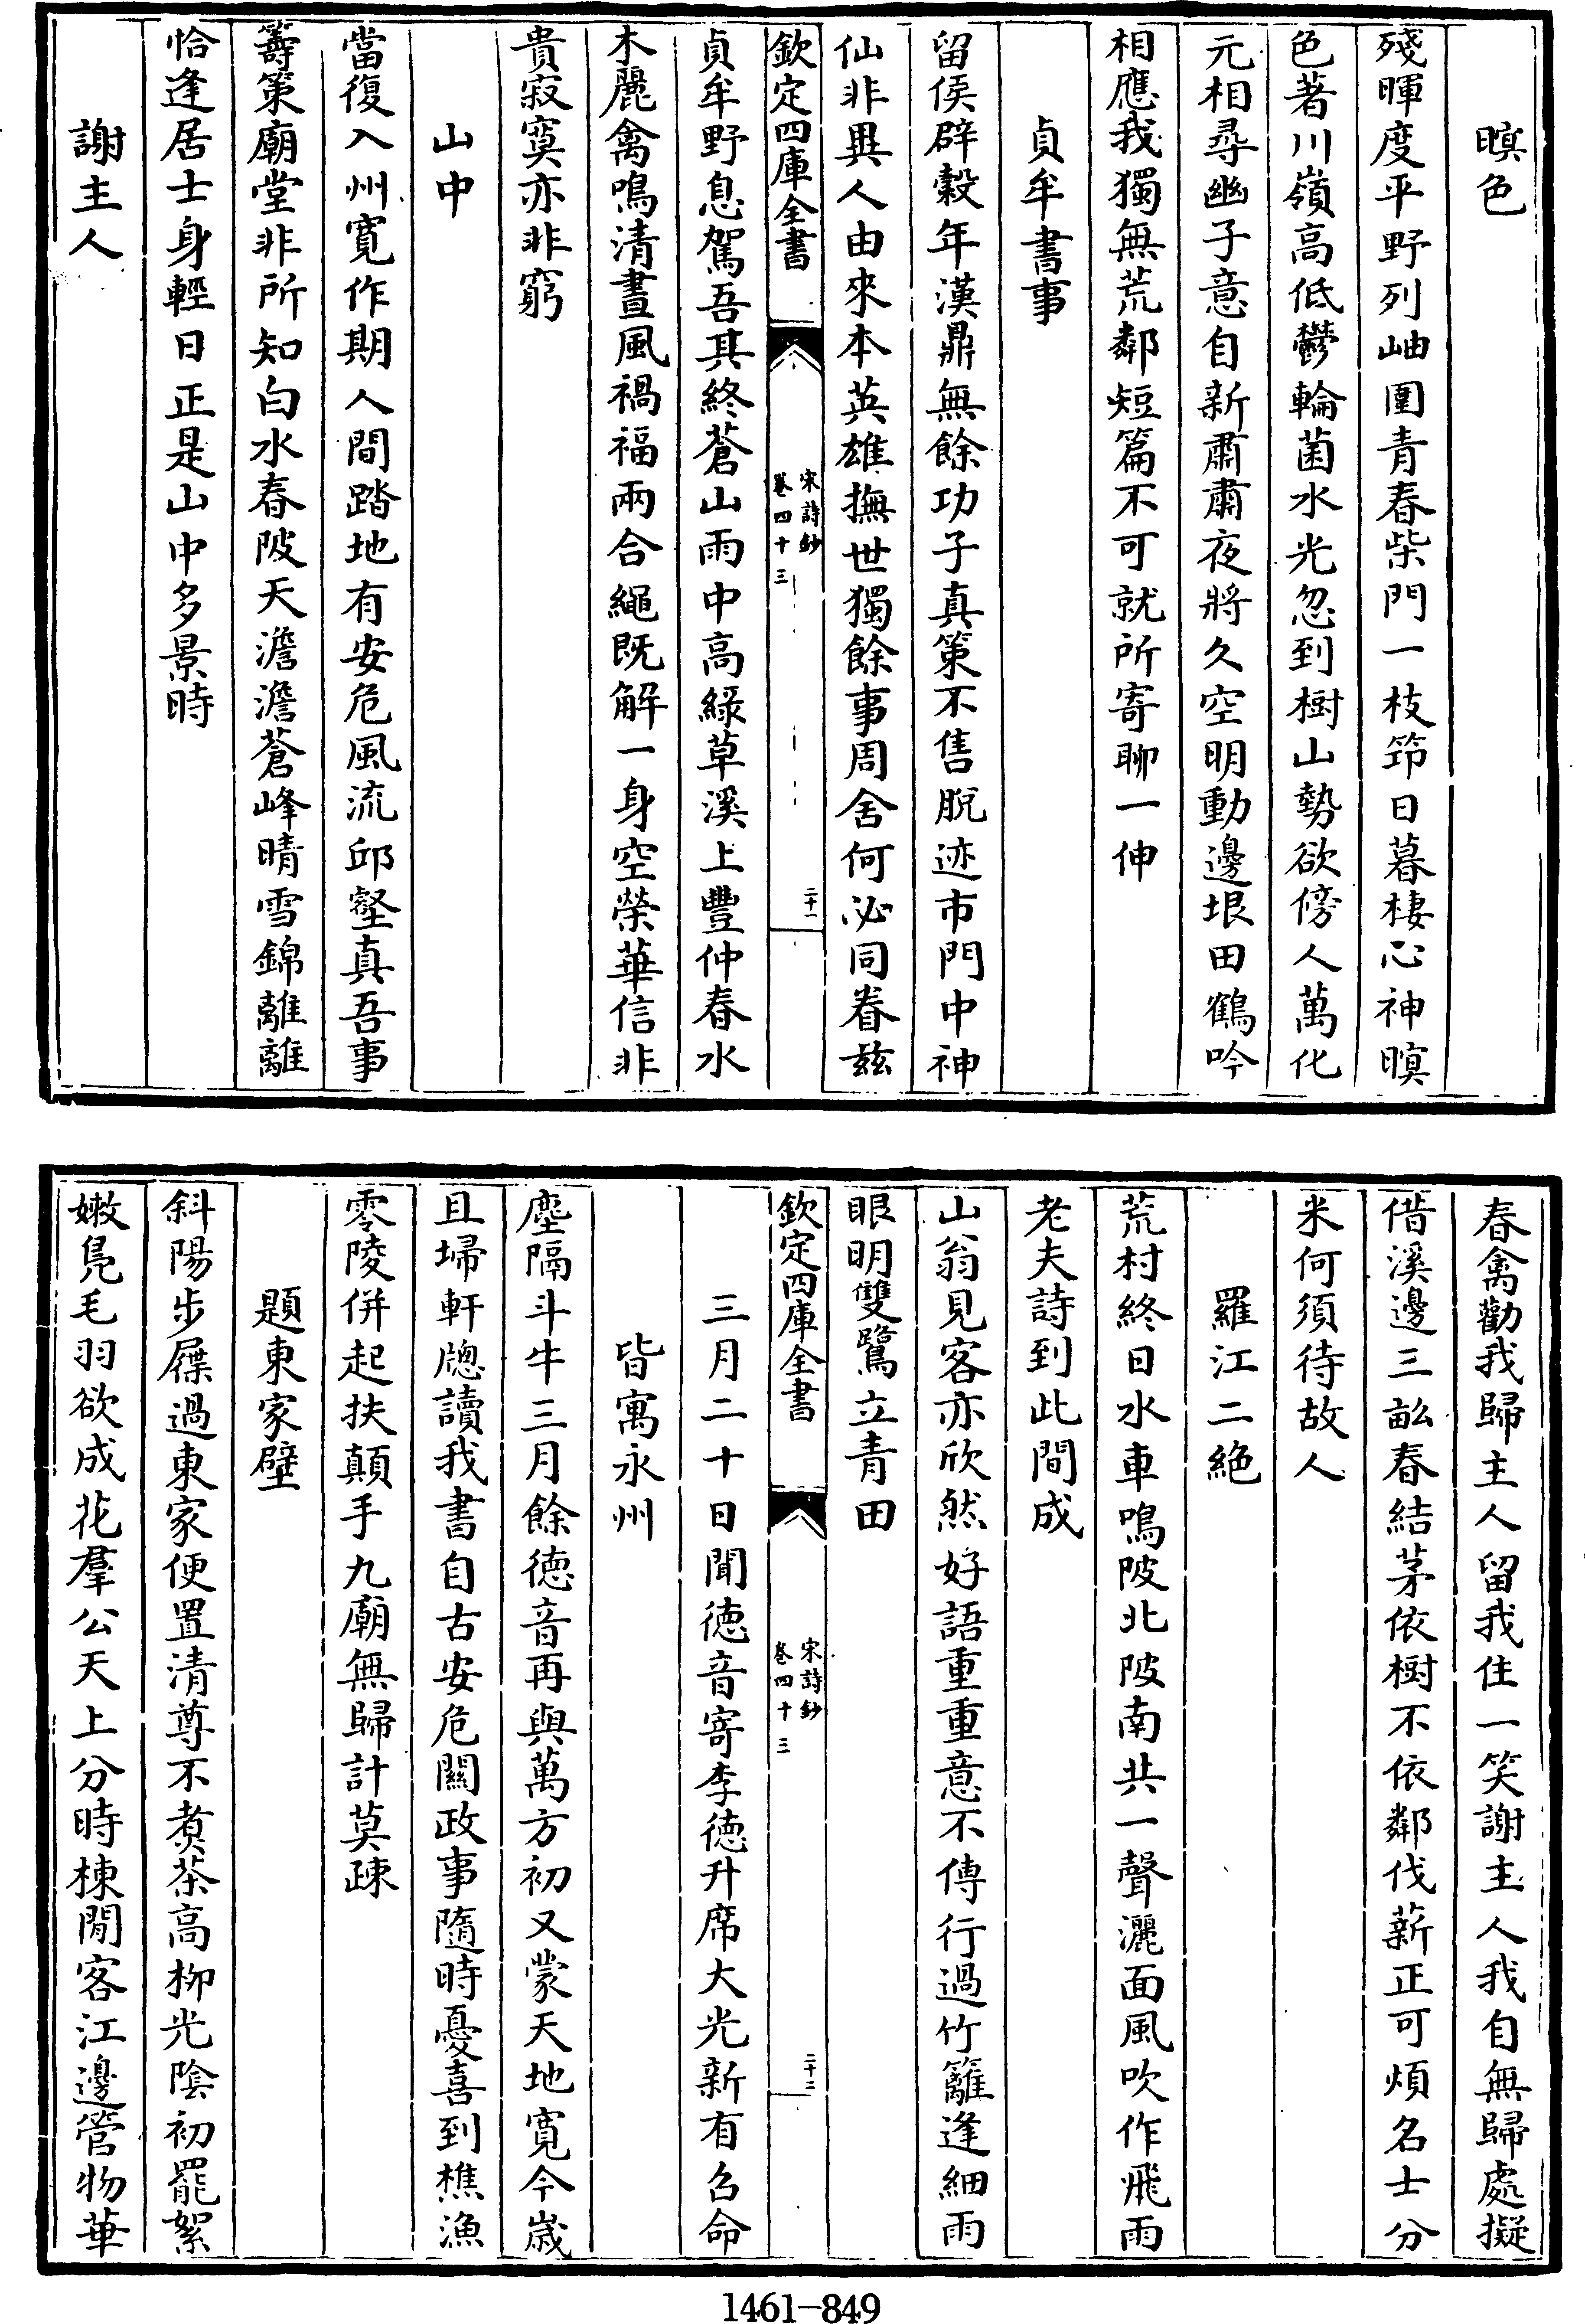 暝色
殘暉度平野列岫圍青春柴門一枝笻日暮棲心神暝
色著川嶺高低鬱輪菌水光忽到樹山勢欲傍人萬化
元相尋幽子意自新肅肅夜將久空明動邊垠田鶴吟
相應我獨無荒鄰短篇不可就所寄聊一伸
貞牟書事
留侯辟穀年漢鼎無餘功子真策不售脫迹市門中神
仙非異人由來本英雄撫世獨餘事周舍何必同眷玆
欽定四庫全書
宋詩鈔
卷四十三
二十一
貞牟野息駕吾其終蒼山雨中高綠草溪上豐仲春水
木麗禽鳴清晝風禍福兩合繩既解一身空榮華信非
貴寂寞亦非窮
山中
當復入州寬作期人間踏地有安危風流邱壑真吾事
籌策廟堂非所知白水春陂天澹澹蒼峰晴雪錦離離
恰逢居士身輕日正是山中多景時
謝主人
春禽勸我歸主人留我住一笑謝主人我自無歸處擬
借溪邊三畝春結茅依樹不依鄰伐薪正可煩名士分
米何須待故人
羅江二絶
荒村終日水車鳴陂北陂南共一聲灑面風吹作飛雨
老夫詩到此間成
山翁見客亦欣然好語重重意不傳行過竹籬逢細雨
眼明雙鷺立青田
欽定四庫全書
宋詩鈔
卷四十三
二十二
三月二十日聞徳音寄李徳升席大光新有召命
皆寓永州
塵隔斗牛三月餘徳音再與萬方初又蒙天地寬今歳
且埽軒牕讀我書自古安危闗政事隨時憂喜到樵漁
零陵併起扶顛手九廟無歸計莫疎
題東家壁
斜陽步屧過東家便置清尊不煑茶高柳光陰初罷絮
嫩鳧毛羽欲成花羣公天上分時棟閒客江邊管物華
1461-849